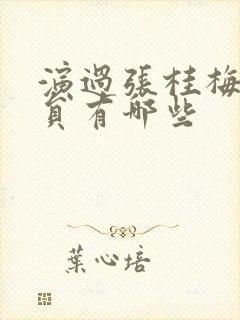 演過張桂梅
員有哪些
葉心培